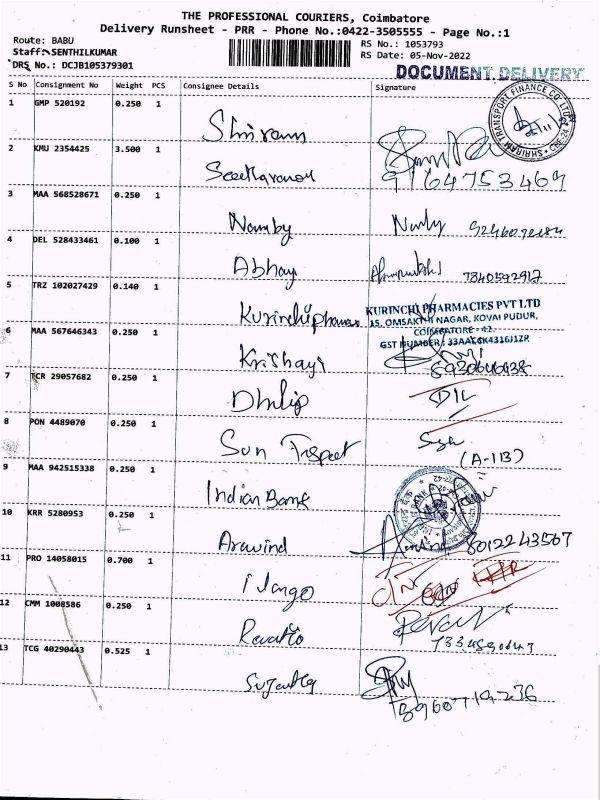 THE PROFESSIONAL COURIERS, Coimbatore
Delivery Runsheet - PRR - Phone No.:0422-3505555 - Page No.:1
Route: BABU
Staff: SENTHILKUMAR
DRS No.: DCJB105379301
RS No.: 1053793
RS Date: 05-Nov-2022
DOCUMENT DELIVERY
S No Consignment No Weight PCS Consignee Details Signature
1 GMP 520192 0.250 1
Shriram
SHRIRAM TRANSPORT FINANCE CO. LTD.
2 KMU 2354425 3.500 1
Seetharaman
9164753469
3 MAA 568528671 0.210 1
Namby
4 DEL 528433461 0.100 1
Abhay
7840592917
5 TRZ 102027429 0.140 1
Kurinchi pharmas
KURINCHI PHARMACIES PVT LTD
15, OMSAKTHI NAGAR, KOVAI PUDUR,
COIMBATORE - 42.
GST NUMBER: 
6 MAA 567646343 0.250 1
Krishayi
7 TCR 29057682 0.250 1
Dhilip
DIL
8 PON 4489070 0.250 1
Sun
(A-113)
9 MAA 942515338 0.250 1
Indian Bank
10 KRR 5280953 0.250 1
Aravind
8012243567
11 PRO 14058015 0.700 1
Ilango
12 CMM 1008586 0.250 1
13 TCG 40290443 0.525 1